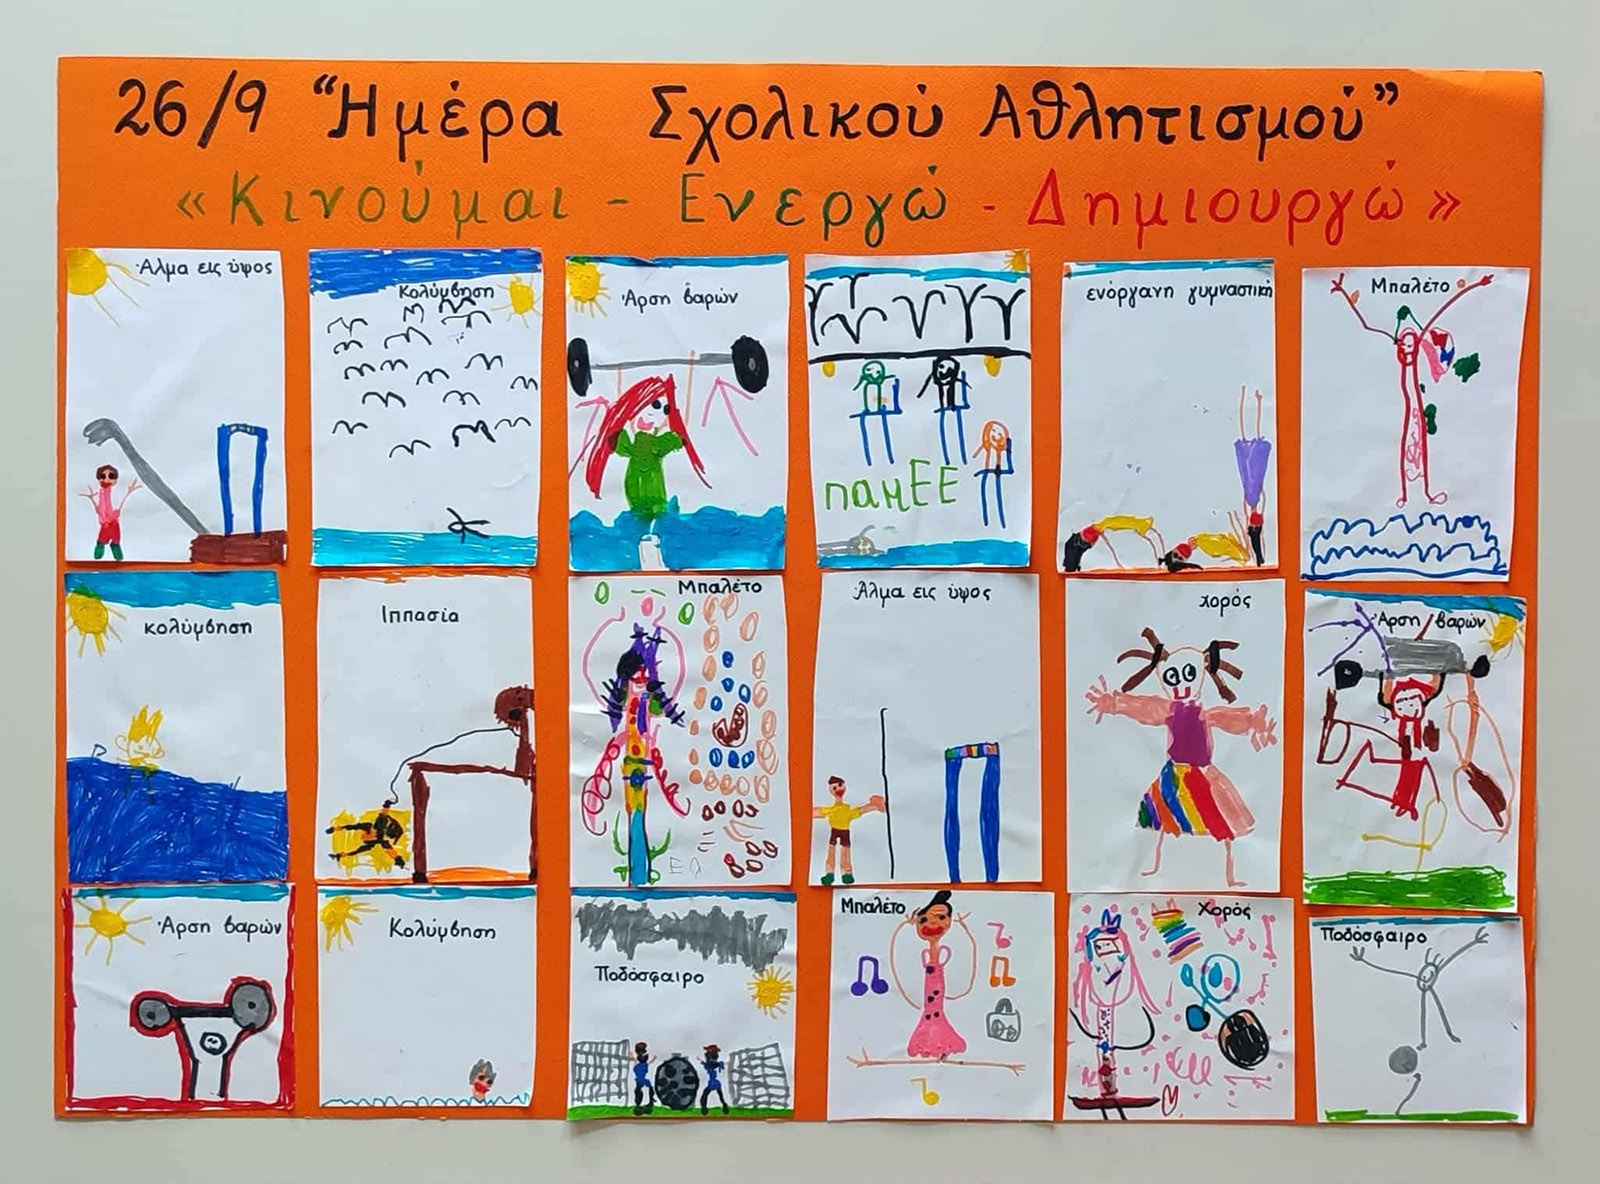 26/9 “Ημέρα Σχολικού Αθλητισμού”
«Κινούμαι - Ενεργώ - Δημιουργώ»
Άλμα εις ύψος
Κολύμβηση
Άρση βαρών
παμΕΕ
ενόργανη γυμναστική
Μπαλέτο
κολύμβηση
Ιππασία
Μπαλέτο
Άλμα εις ύψος
χορός
Άρση βαρών
Άρση βαρών
Κολύμβηση
Ποδόσφαιρο
Μπαλέτο
Χορός
Ποδόσφαιρο